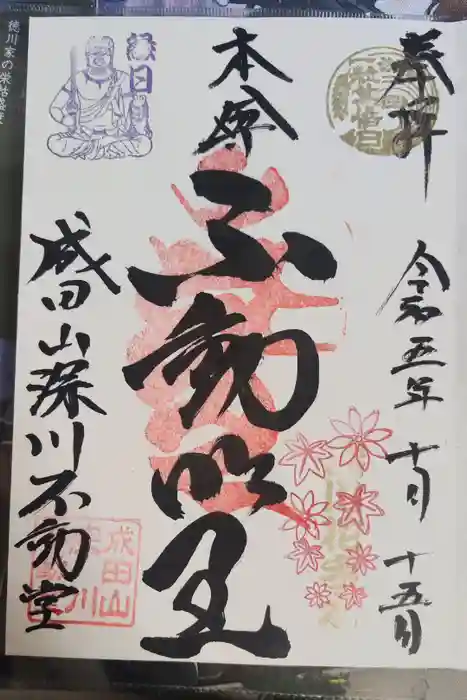 奉拝
令和五年 十月 十五日
本尊
不動明王
縁日
成田山深川不動堂
成田山
深川
徳川家の栄枯盛衰